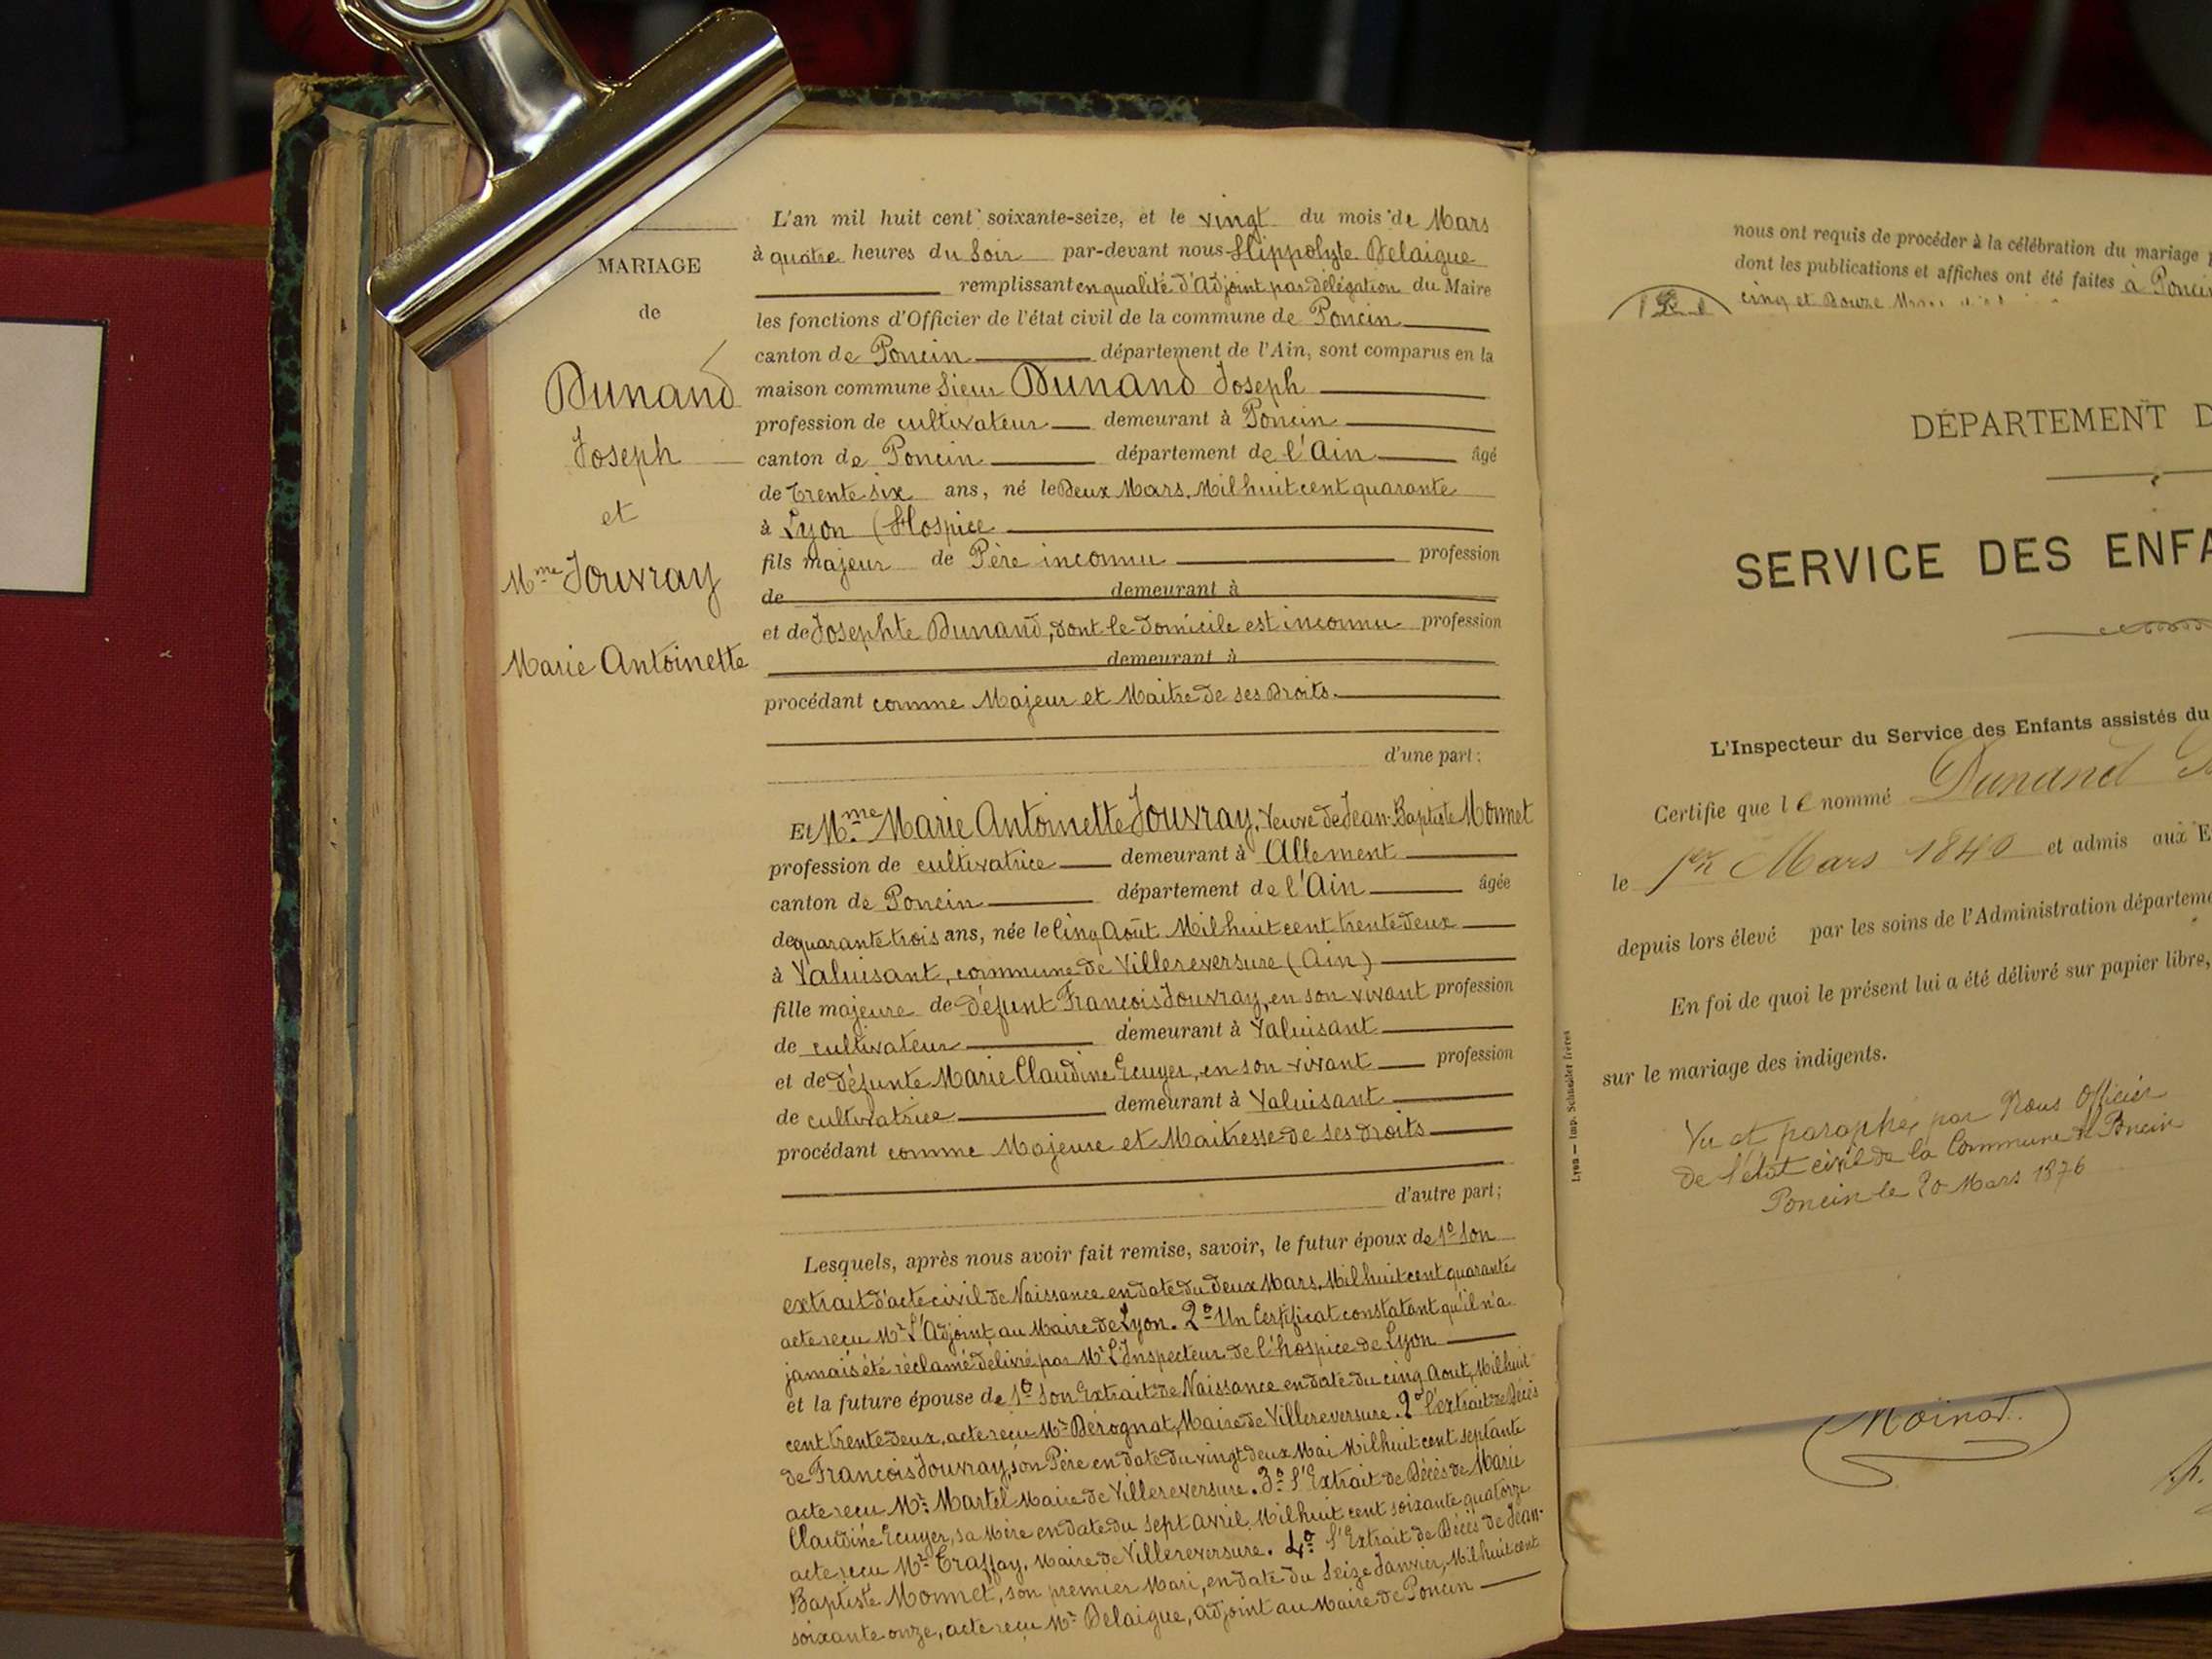 MARIAGE
de
Dunand
Joseph
et
Mme Jouvray
Marie Antoinette
L'an mil huit cent soixante-seize, et le vingt du mois de Mars
à quatre heures du Soir par-devant nous Hippolyte Delaigue
remplissant en qualité d'Adjoint par délégation du Maire
les fonctions d'Officier de l'état civil de la commune de Poncin
canton de Poncin département de l'Ain, sont comparus en la
maison commune Sieur Dunand Joseph
profession de cultivateur demeurant à Poncin
canton de Poncin département de l'Ain âgé
de trente six ans, né le Deux Mars, Mil huit cent quarante
à Lyon (Hospice
fils majeur de Père inconnu profession
de demeurant à
et de Josephte Dunand, dont le domicile est inconnu profession
demeurant à
procédant comme Majeur et Maitre de ses Droits.
d'une part;
Et Mme Marie Antoinette Jouvray, Veuve de Jean-Baptiste Monnet
profession de cultivatrice demeurant à Allement
canton de Poncin département de l'Ain âgée
de quarante trois ans, née le Cinq Août Mil huit cent trente deux
à Valuisant, commune de Villereversure (Ain)
fille majeure de défunt François Jouvray, en son vivant profession
de cultivateur demeurant à Valuisant
et de défunte Marie Claudine Ecuyer, en son vivant profession
de cultivatrice demeurant à Valuisant
procédant comme Majeure et Maitresse de ses droits
d'autre part;
Lesquels, après nous avoir fait remise, savoir, le futur époux de 1º Son
extrait d'acte civil de Naissance en date du deux Mars, Mil huit cent quarante
acte reçu Mr L'Adjoint au Maire de Lyon. 2º Un Certificat constatant qu'il n'a
jamais été réclamé délivré par Mr L'Inspecteur de l'hospice de Lyon
et la future épouse de 1º Son Extrait de Naissance en date du cinq Aout, Mil huit
cent trente deux, acte reçu Mr Dérognat, Maire de Villereversure. 2º l'extrait de Décès
de François Jouvray, son Père en date du vingt deux Mai Mil huit cent septante
acte reçu Mr Martel Maire de Villereversure. 3º l'Extrait de Décès de Marie
Claudine Ecuyer, sa Mère en date du sept avril, Mil huit cent soixante quatorze
acte reçu Mr Traffay, Maire de Villereversure. 4º l'Extrait de Décès de Jean-
Baptiste Monnet, son premier Mari, en date du Seize Janvier, Mil huit cent
soixante onze, acte reçu Mr Delaigue, adjoint au Maire de Poncin
Lyon — Imp. Schneider frères
nous ont requis de procéder à la célébration du mariage
dont les publications et affiches ont été faites à Poncin
cinq et Douze
DÉPARTEMENT D
SERVICE DES ENFA
L'Inspecteur du Service des Enfants assistés du
Certifie que le nommé Dunand
le 1er Mars 1840 et admis aux E
depuis lors élevé par les soins de l'Administration départeme
En foi de quoi le présent lui a été délivré sur papier libre,
sur le mariage des indigents.
Vu et paraphé, par Nous Officier
de l'état civil de la Commune de Poncin
Poncin le 20 Mars 1876
Moinat